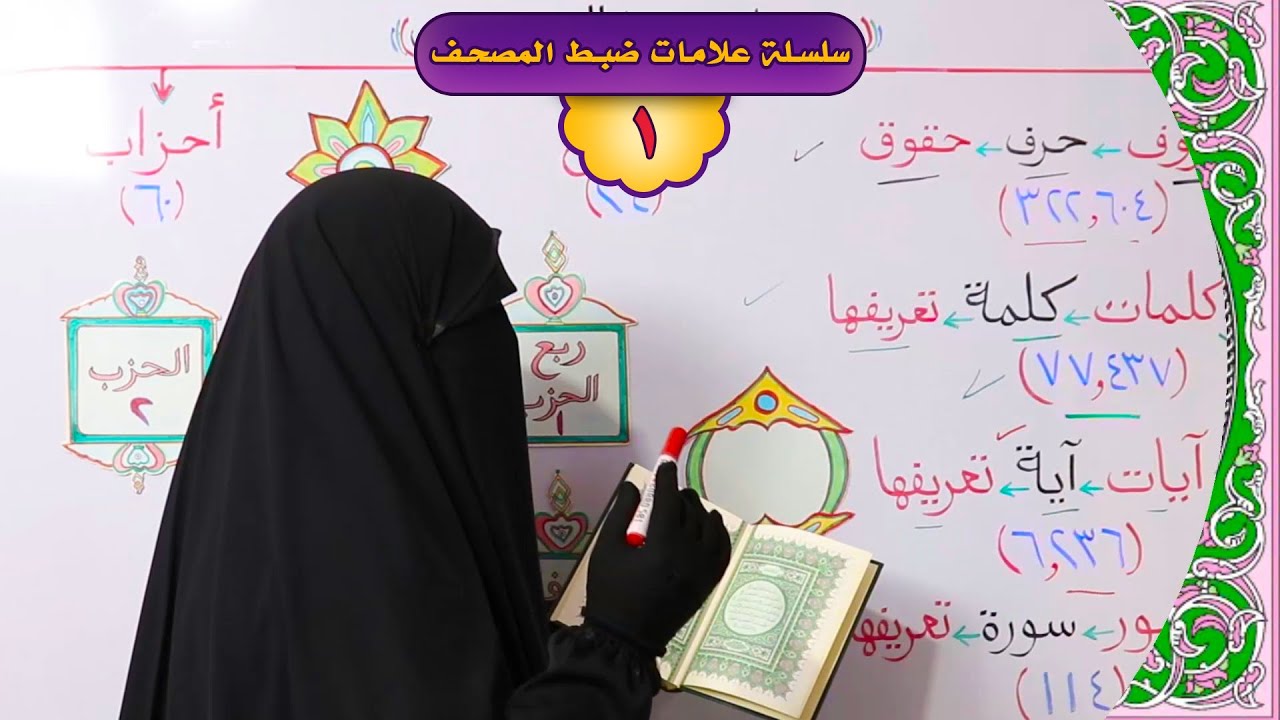 سلسلة علامات ضبط المصحف
١
حرف ← حقوق
(٣٢٢,٦٠٤)
كلمات ← كلمة ← تعريفها
(٧٧,٤٣٧)
آيات ← آية ← تعريفها
(٦,٢٣٦)
سورة ← تعريفها
(١١٤)
أحزاب
(٦٠)
ربع
الحزب
١
الحزب
٢